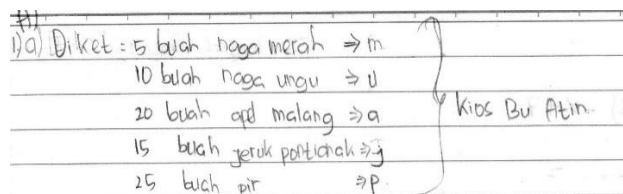 1) a) Diket : 5 buah naga merah ⇒ m
10 buah naga ungu ⇒ u
20 buah apel malang ⇒ a
15 buah jeruk pontianak ⇒ j
25 buah pir ⇒ p
Kios Bu Atin